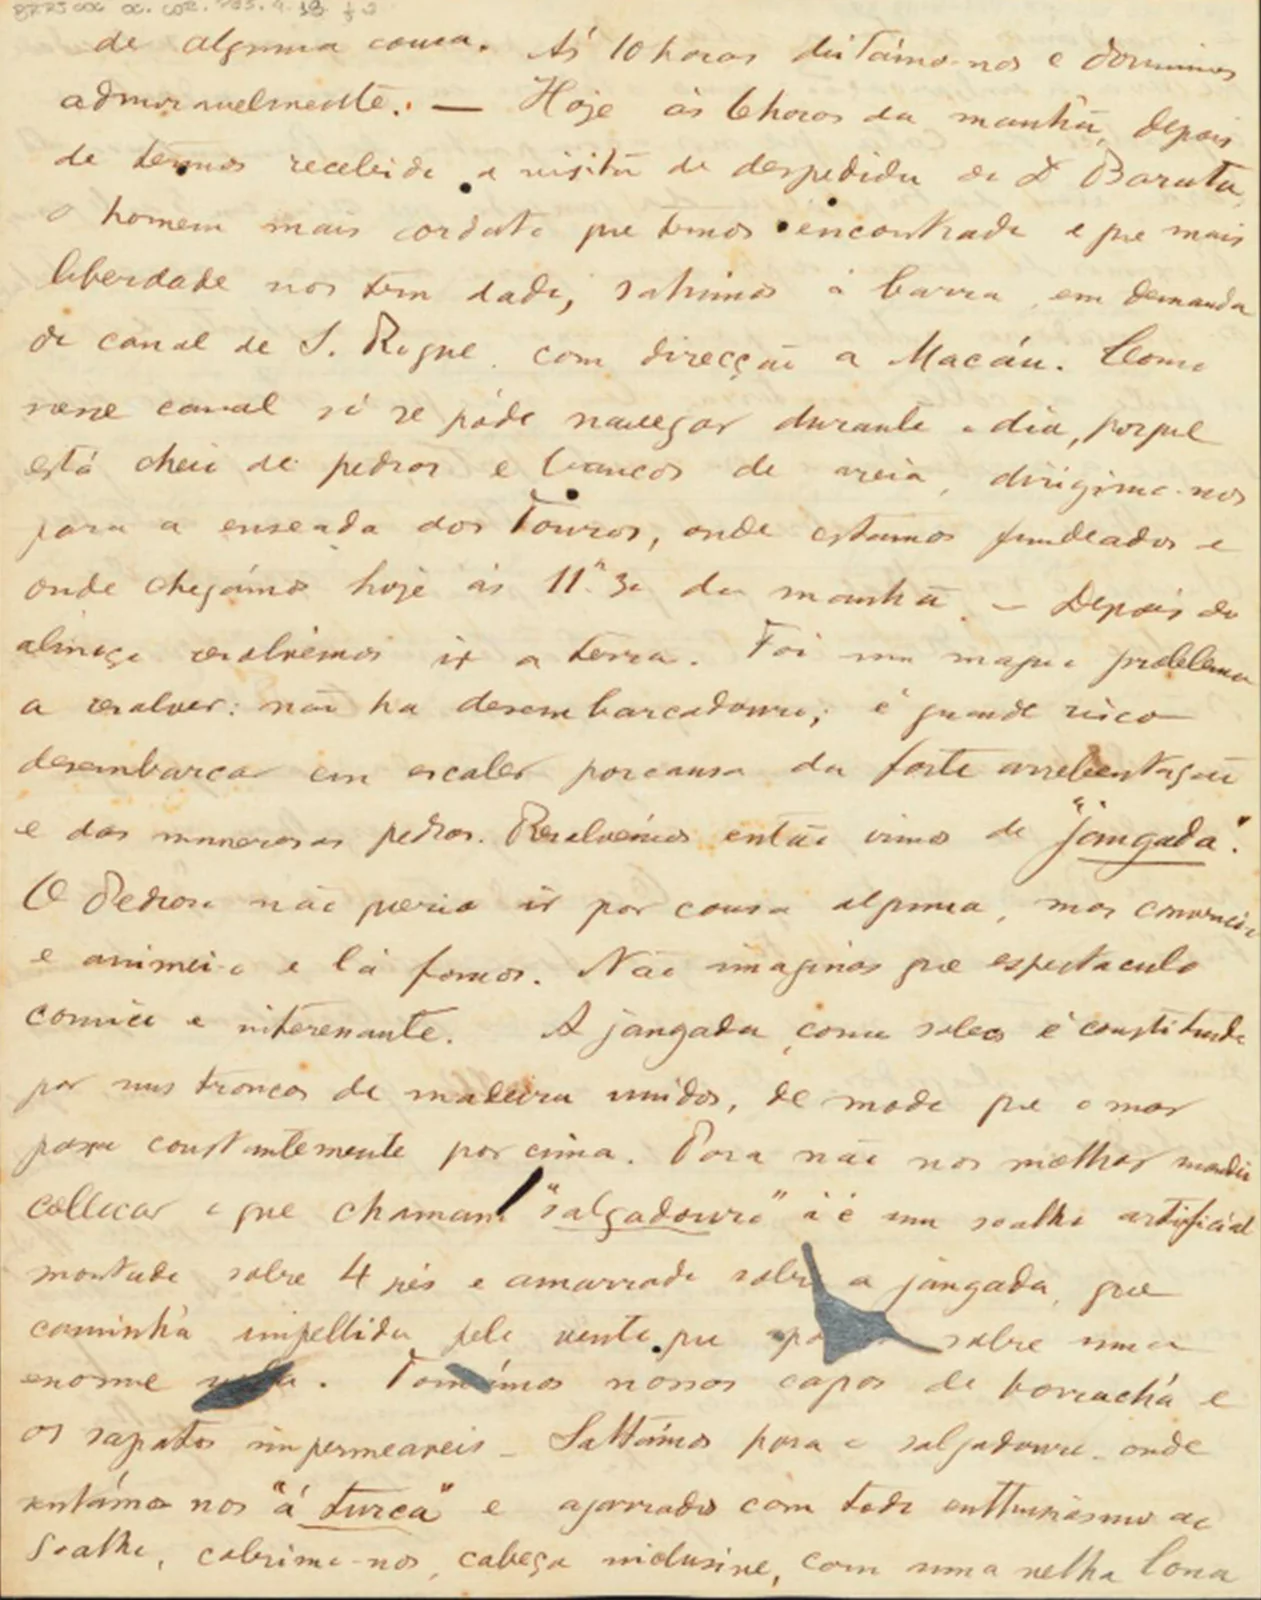 de alguma cousa. Ás 10 horas deitámo-nos e dormimos
admiravelmente. — Hoje ás 6 horas da manhã, depois
de termos recebido a visita de despedida do Dr Barata,
o homem mais cordato que temos encontrado e que mais
liberdade nos tem dado, sahimos a barra, em demanda
do canal de S. Roque, com direcção a Macáu. Como
nesse canal só se póde navegar durante o dia, porque
está cheio de pedras e bancos de areia, dirigimo-nos
para a enseada dos Touros, onde estamos fundeados e
onde chegámos hoje ás 11h 30 da manhã. — Depois do
almoço resolvemos ir a terra. Foi um magno problema
a resolver: não ha desembarcadouro; é grande risco
desembarcar em escaler por causa da forte arrebentação
e das numerosas pedras. Resolvemos então irmos de "jangada".
O Pedroso não queria ir por cousa alguma, mas convenci-o
e animei-o e lá fomos. Não imaginas que espectaculo
comico e interessante. A jangada, como sabes é constituida
por uns troncos de madeira unidos, de modo que o mar
passa constantemente por cima. Para não nos molhar mandei
collocar o que chamam "salgadouro" i é um soalho artificial
montado sobre 4 pés e amarrado sobre a jangada, que
caminha impellida pelo vento que sobre uma
enorme vela. Tomámos nossas capas de borracha e
os sapatos impermeaveis. Saltámos para o salgadouro onde
sentámo nos "á turca" e agarrados com todo enthusiasmo ao
soalho, cobrimo-nos, cabeça inclusive, com uma velha lona